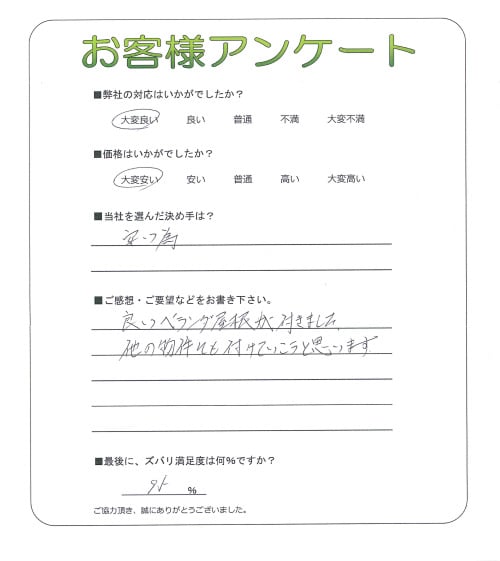 お客様アンケート
■弊社の対応はいかがでしたか？
大変良い 良い 普通 不満 大変不満
■価格はいかがでしたか？
大変安い 安い 普通 高い 大変高い
■当社を選んだ決め手は？
安い為
■ご感想・ご要望などをお書き下さい。
良いベランダ屋根が付きました
他の物件にも付けていこうと思います
■最後に、ズバリ満足度は何%ですか？
%
ご協力頂き、誠にありがとうございました。